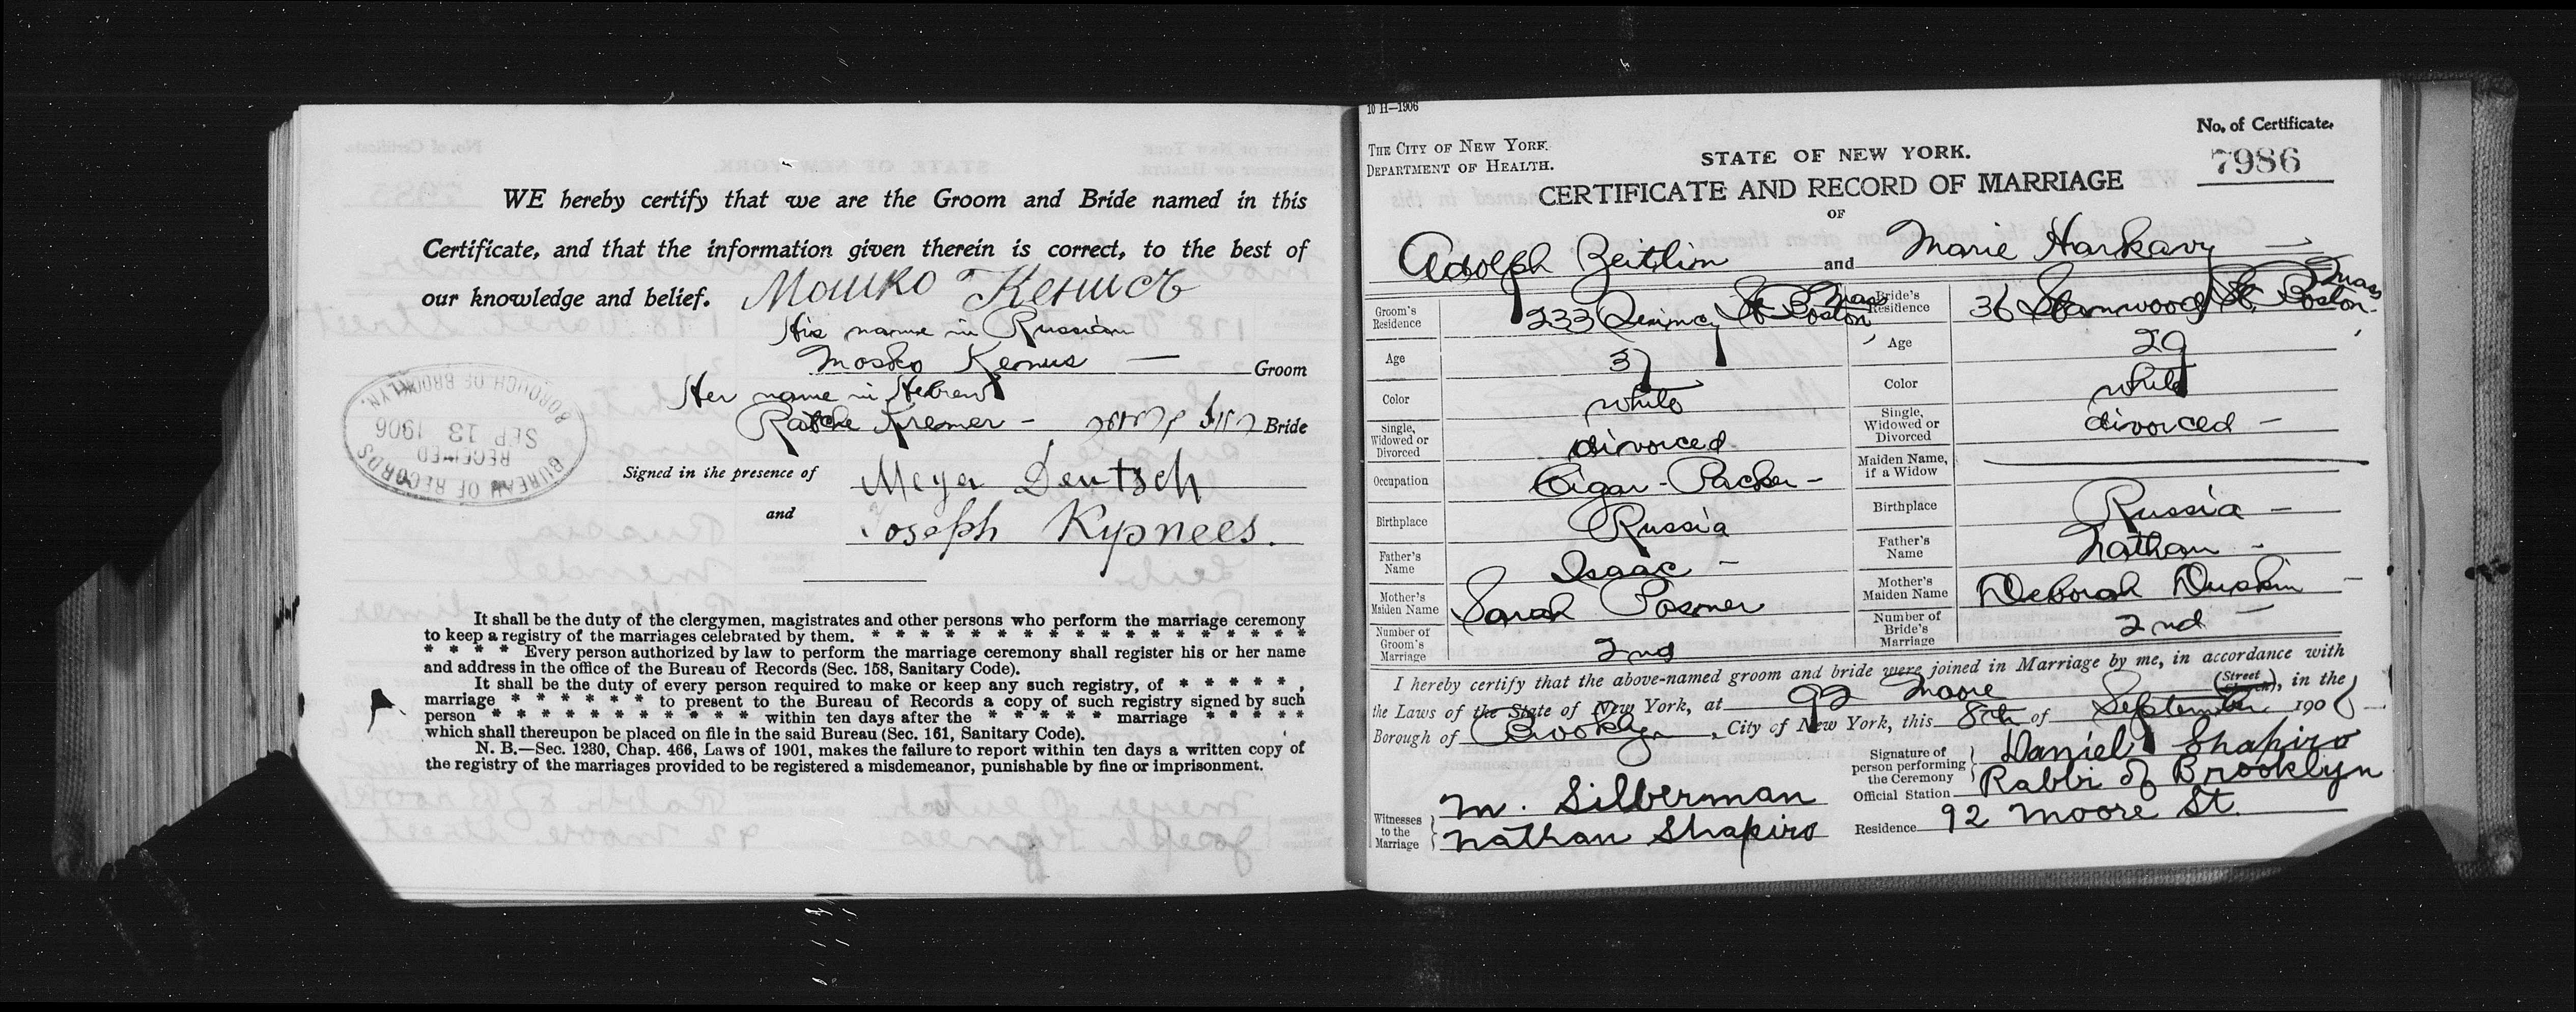 WE hereby certify that we are the Groom and Bride named in this
Certificate, and that the information given therein is correct, to the best of
our knowledge and belief.
His name in Russian
Mosko Kemus — Groom
Her name in Hebrew
Ratche Kremer - Bride
Signed in the presence of Meyer Deutsch
and Joseph Kypnees.
BUREAU OF RECORDS
RECEIVED
SEP 13 1906
BOROUGH OF BROOKLYN.
It shall be the duty of the clergymen, magistrates and other persons who perform the marriage ceremony
to keep a registry of the marriages celebrated by them. * * * * * * * * * * * * * * *
* * * * Every person authorized by law to perform the marriage ceremony shall register his or her name
and address in the office of the Bureau of Records (Sec. 158, Sanitary Code).
It shall be the duty of every person required to make or keep any such registry, of * * * * * ,
marriage * * * * * * to present to the Bureau of Records a copy of such registry signed by such
person * * * * * * * * * * * within ten days after the * * * * * marriage * * * * *
which shall thereupon be placed on file in the said Bureau (Sec. 161, Sanitary Code).
N. B.—Sec. 1230, Chap. 466, Laws of 1901, makes the failure to report within ten days a written copy of
the registry of the marriages provided to be registered a misdemeanor, punishable by fine or imprisonment.
10 H—1906
THE CITY OF NEW YORK.
DEPARTMENT OF HEALTH.
No. of Certificate.
7986
STATE OF NEW YORK.
CERTIFICATE AND RECORD OF MARRIAGE
OF
Adolph Zeitlin and Marie Harkavy
Groom's Residence 233 Quincy St Boston Mass
Bride's Residence 36 Stanwood St. Boston Mass
Age 37
Age 29
Color white
Color white
Single, Widowed or Divorced divorced
Single, Widowed or Divorced divorced -
Occupation Cigar - Packer -
Maiden Name, if a Widow
Birthplace Russia
Birthplace Russia -
Father's Name Isaac -
Father's Name Nathan -
Mother's Maiden Name Sarah Posner
Mother's Maiden Name Deborah Duskin -
Number of Groom's Marriage 2nd
Number of Bride's Marriage 2nd
I hereby certify that the above-named groom and bride were joined in Marriage by me, in accordance with
the Laws of the State of New York, at 92 Moore (Street Church), in the
Borough of Brooklyn, City of New York, this 8th of September 1906
Signature of person performing the Ceremony Daniel Shapiro
Official Station Rabbi of Brooklyn
Residence 92 Moore St.
Witnesses to the Marriage M. Silberman
Nathan Shapiro